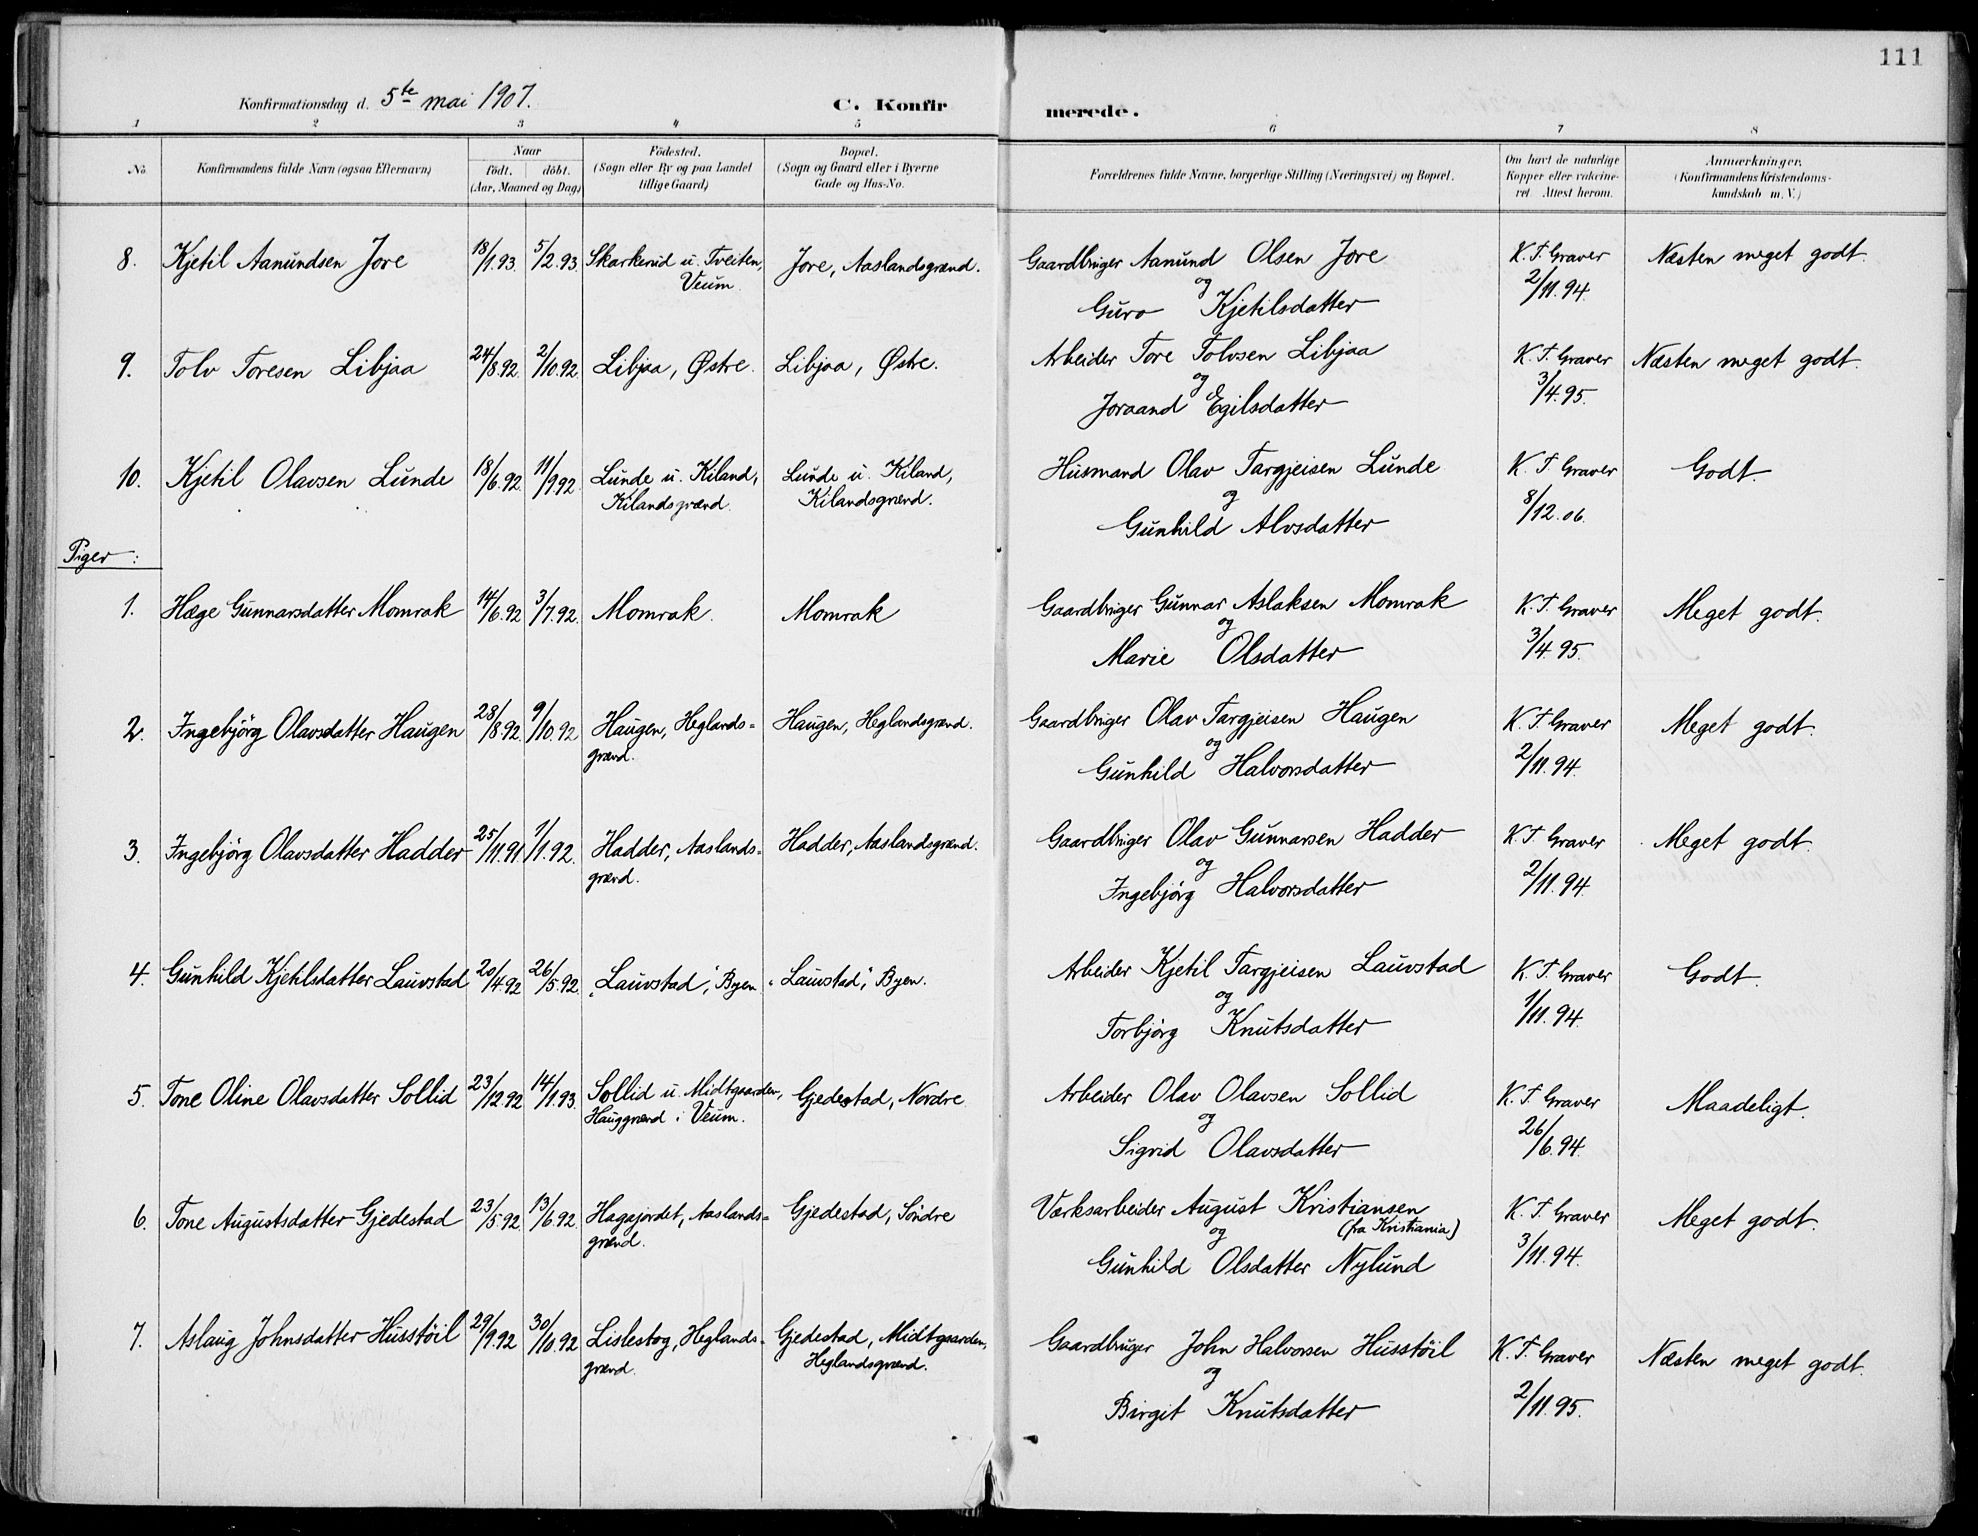 111
Konfirmationsdag d. 5te mai 1907. C. Konfirmerede.
1 2 3 4 5 6 7 8
No. Konfirmandens fulde Navn (ogsaa Efternavn) Naar födt. döbt. (Aar, Maaned og Dag) Födested. (Sogn eller By og paa Landet tillige Gaard) Bopæl. (Sogn og Gaard eller i Byerne Gade og Hus-No. Forældrenes fulde Navne, borgerlige Stilling (Næringsvei) og Bopæl. Om havt de naturlige Kopper eller vakcineret. Attest herom. Anmærkninger. (Konfirmandens Kristendomskundskab m. V.)
8. Kjetil Aanundsen Jore 18/1.93. 5/2.93. Skarkerud u. Tveiten, Jore, Aaslandsgrænd. Gaardbruger Aanund Olsen Jore K. T. Graver Næsten meget godt.
Veum. og 2/11.94.
Guro Kjetilsdatter
9. Tolv Toresen Libjaa 24/8.92. 2/10.92. Libjaa, Østre. Libjaa, Østre. Arbeider Tore Tolvsen Libjaa K. T. Graver Næsten meget godt.
og 3/4.95.
Joraand Egilsdatter
10. Kjetil Olavsen Lunde 18/6.92. 11/9.92. Lunde u. Kiland, Lunde u. Kiland, Husmand Olav Targjeisen Lunde K. T. Graver Godt.
Kilandsgrænd. Kilandsgrænd. og 8/12.06.
Gunhild Alvsdatter
Piger:
1. Hæge Gunnarsdatter Momrak 14/6.92 3/7.92. Momrak. Momrak Gaardbruger Gunnar Aslaksen Momrak K. T. Graver Meget godt.
og 3/4.95.
Marie Olsdatter
2. Ingebjörg Olavsdatter Haugen 28/8.92. 9/10.92 Haugen, Heglands= Haugen, Heglandsgrænd. Gaardbruger Olav Targjeisen Haugen K. T. Graver Meget godt.
grænd. og 2/11.94.
Gunhild Halvorsdatter
3. Ingebjörg Olavsdatter Hadder 25/11.91 1/1.92. Hadder, Aaslands= Hadder, Aaslandsgrænd. Gaardbruger Olav Gunnarsen Hadder K. T. Graver Meget godt.
grænd. og 2/11.94.
Ingebjörg Halvorsdatter
4. Gunhild Kjetilsdatter Lauvstad 20/4.92 26/5.92. "Lauvstad", Byen "Lauvstad", Byen. Arbeider Kjetil Targjeisen Lauvstad K. T. Graver Godt.
og 1/11.94.
Torbjörg Knutsdatter
5. Tone Oline Olavsdatter Sollid 23/12.92 14/1.93. Sollid u. Midtgaarden, Gjedestad, Nordre Arbeider Olav Olavsen Sollid K. T. Graver Maadeligt.
Hauggrænd i Veum. og 26/6.94.
Sigrid Olavsdatter
6. Tone Augustsdatter Gjedestad 23/5.92. 13/6.92. Hagajordet, Aaslands= Gjedestad, Söndre Værksarbeider August Kristiansen K. T. Graver Meget godt.
grænd. og (fra Kristiania) 3/11.94.
Gunhild Olsdatter Nylund
7. Aslaug Johnsdatter Husstöil 29/9.92 30/10.92 Lislestog, Heglands= Gjedestad, Midtgaarden, Gaardbruger John Halvorsen Husstöil K. T. Graver Næsten meget godt.
grænd. Heglandsgrænd. og 2/11.95.
Birgit Knutsdatter